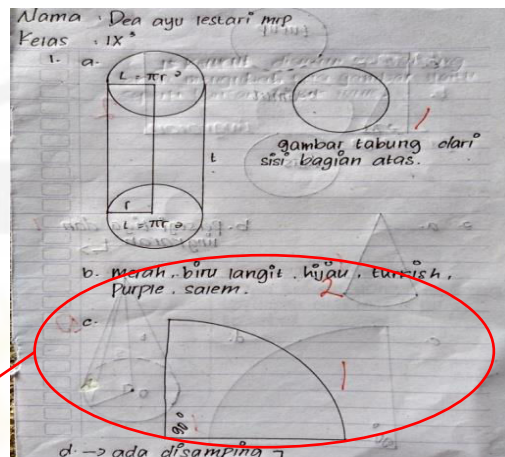 Nama : Dea ayu lestari mrp
Kelas : IX³
1. a.
L = πr²
t
r
L = πr²
gambar tabung dari
sisi bagian atas.
1
b. merah, biru langit, hijau, turkish,
Purple, salem.
2
c.
90°
1
d. → ada disamping